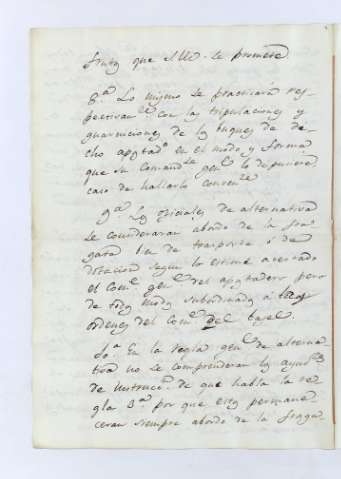 fruto que el Ue. se promete
8.ª Lo mismo se practicará res-
pectivam.te con las tripulaciones y
guarniciones de los buques de di-
cho apostad.o en el modo y forma
que su Comand.te gen.l lo dispusiere
caso de hallarlo conven.te
9.ª Los oficiales de alternativa
se considerarán abordo de la fra-
gata bien de trasporte ó de
dotacion segun lo estime acertado
el Com.te gen.l del apostadero pero
de todos modos subordinados á las
ordenes del Com.te del bagel.
10.ª En la regla gen.l de alterna-
tiva no se comprenderan los ayud.s
de instrucc.n de que habla la re-
gla 3.ª por que estos permane-
ceran siempre abordo de la fraga-